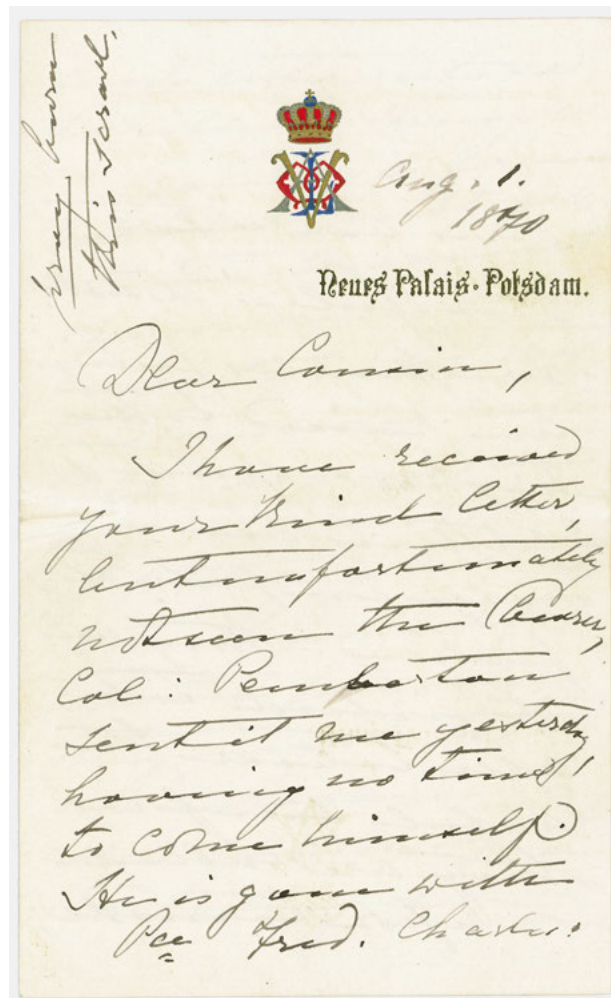 pray burn
this scrawl.
Aug. 1.
1870
Neues Palais-Potsdam.
Dear Cousin,
I have received
your kind letter,
but unfortunately
not seen the bearer,
Col: Pemberton
sent it me yesterday,
having no time
to come himself.
He is gone with
Pce Fred. Charles: